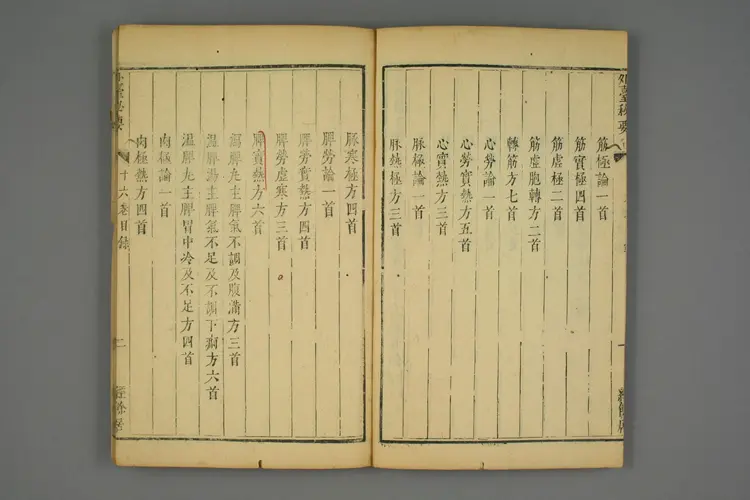 外臺秘要
筋極論一首
筋實極四首
筋虛極二首
筋虛胞轉方二首
轉筋方七首
心勞論一首
心勞實熱方五首
心實熱方三首
脉極論一首
脉熱極方三首
一
經餘居
脉寒極方四首
脾勞論一首
脾勞實熱方四首
脾勞虛寒方三首
脾實熱方六首
瀉脾丸主脾氣不調及腹滿方三首
溫脾湯主脾氣不足及不調下痢方六首
溫脾丸主脾胃中冷及不足方四首
肉極論一首
肉極熱方四首
外臺秘要
十六卷目錄
二
經餘居